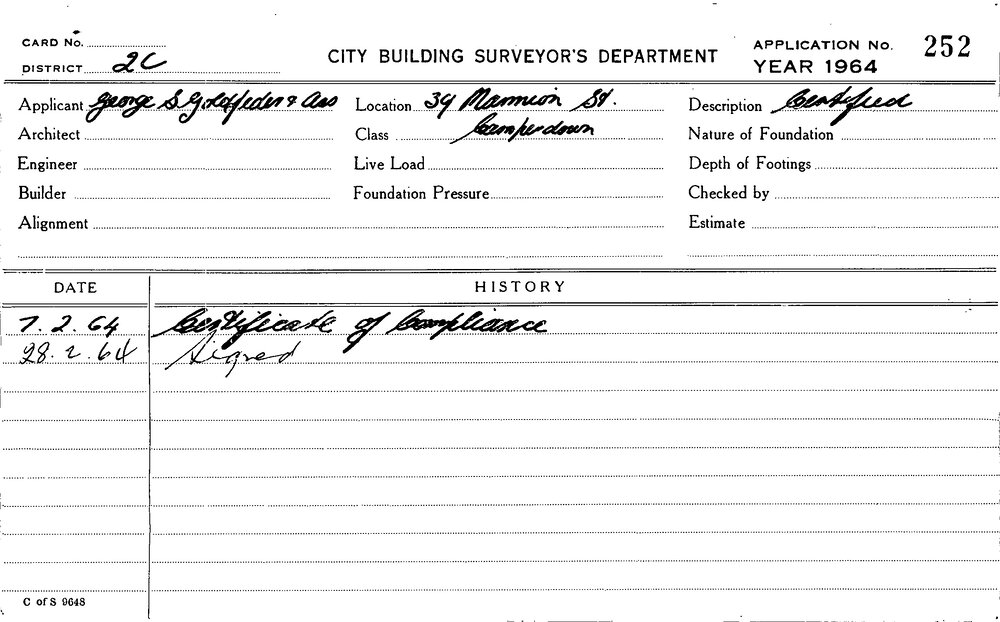 CARD No.
DISTRICT 2C
CITY BUILDING SURVEYOR'S DEPARTMENT
APPLICATION No. 252
YEAR 1964
Applicant George S Goldfeder & Ass Location 39 Mannion St. Description Certified
Architect Class Camperdown Nature of Foundation
Engineer Live Load Depth of Footings
Builder Foundation Pressure Checked by
Alignment Estimate
DATE HISTORY
7.2.64 Certificate of Compliance
28.2.64 Signed
C of S 9648